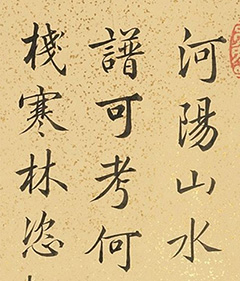 河陽山水
譜可考何
棧寒林恣